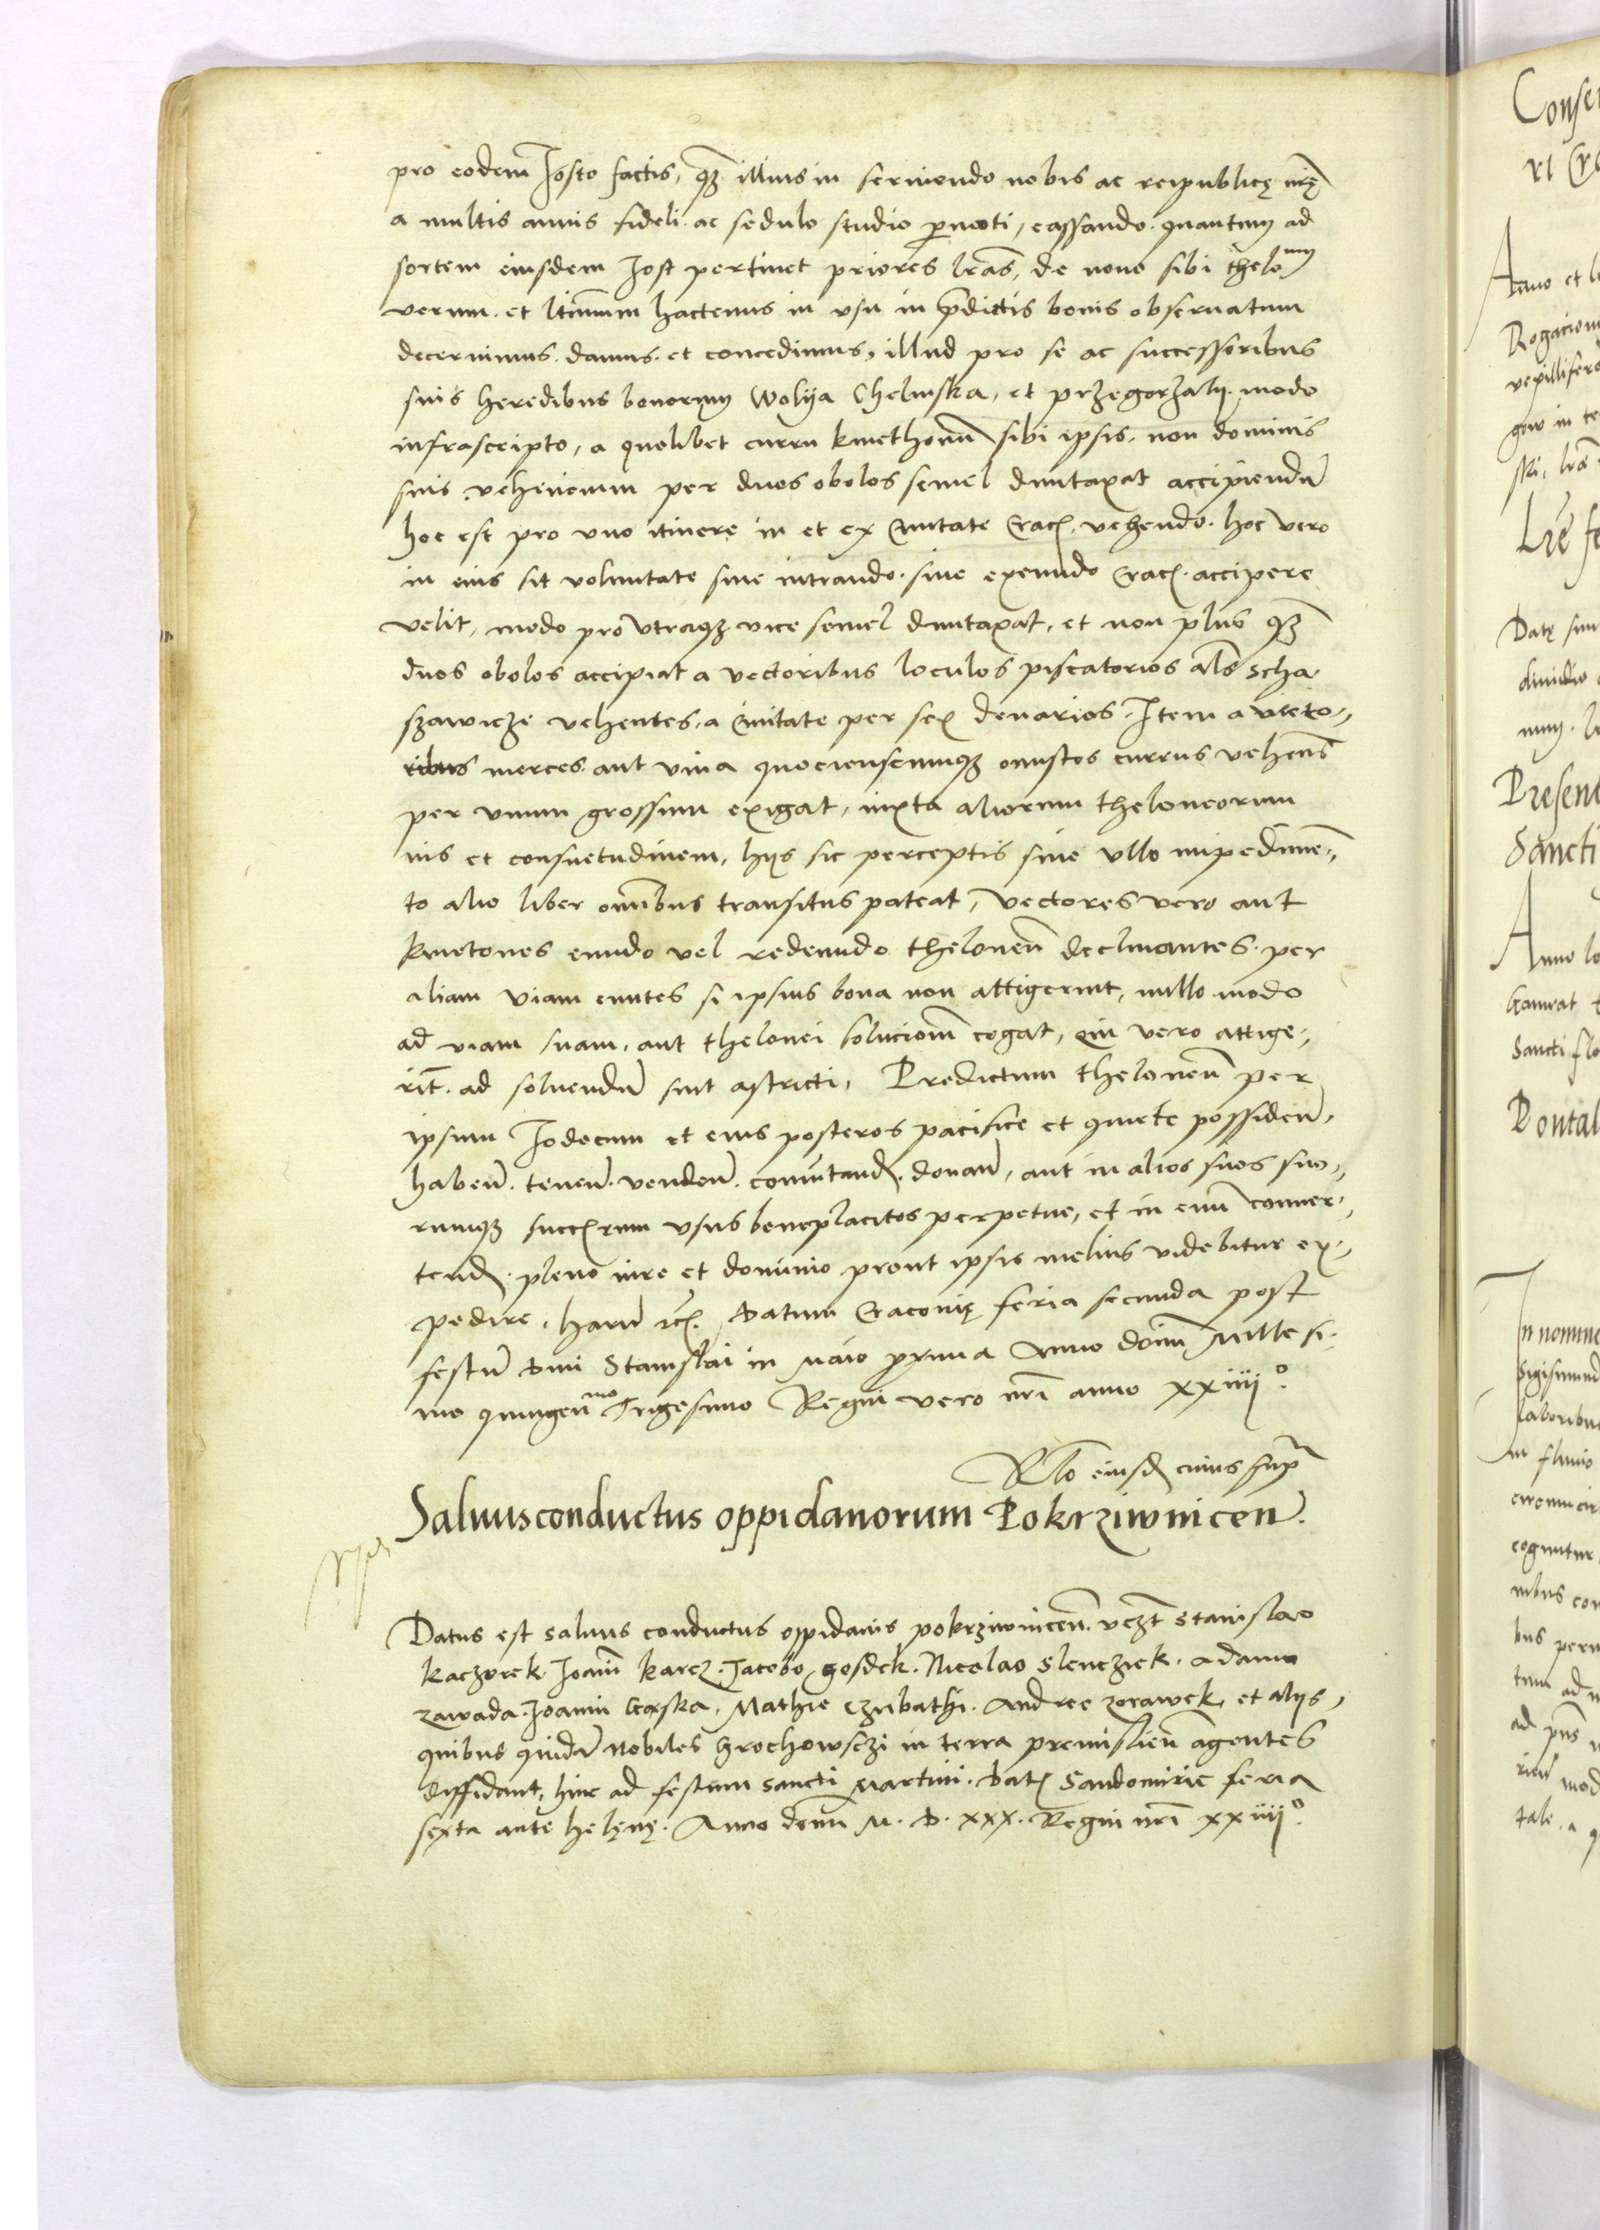 pro eodem Josto factis, q3 illius in serviendo nobis ac reipublicę nrę
a multis annis fideli ac sedulo studio permoti, cassando quantum ad
sortem eiusdem Jost pertinet priores lras, de novo sibi thelonm
verum et ltimum hactenus in usu in pdictis bonis observatum
decernimus damus et concedimus, illud pro se ac successoribus
suis heredibus bonorum Wolya Chelmska, et przegorzaly modo
infrascripto, a quolibet curru kmethonu sibi ipsis non dominis
suis vehencium per duos obolos semel duntaxat accipiendu
hoc est pro uno itinere in et ex Civitate Crac vehendo hoc vero
in eius sit voluntate sive intrando sive exeundo Crac accipere
velit, modo pro utraq3 vice semel duntaxat, et non plus q3
duos obolos accipiat a vectoribus loculos piscatorios als scha
szawicze vehentes, a Civitate per sex denarios. Item a vecto-
ribus merces aut vina quociensciunq3 onustos currus vehens
per unum grossum exigat, iuxta aliorum theloneorum
ius et consuetudinem, hys sic perceptis sine ullo impedimen-
to alio liber omibus transitus pateat, vectores vero aut
kmetones eundo vel redeundo theloneu declinantes per
aliam viam euntes si ipsius bona non attigerint, nullo modo
ad viam suam, aut thelonei soluciom cogat, qui vero attige-
rit ad solvendu sint astricti, Predictum theloneu per
ipsum Jodocum et eius posteros pacifice et quiete possiden,
haben. tenen. venden. comutand. donan, aut in alios suos suo-
rumq3 succrum usus beneplacitos perpetue, et in evu conver-
tend. pleno iure et dominio prout ipsis melius videbitur ex-
pedire, haru rc. Datum Cracovię feria secunda post
festu Divi Stanislai in Maio proxima Anno domi Mille si-
mo quingenmo Trigesimo Regni vero nri anno xxiiii°.
Rlo eiusd cuius supr
Salvusconductus oppidanorum Pokrziwnicen.
Datus est salvus conductus oppidanis pokrziwnicen. vczt Stanislao
kaczorek. Joani karcz. Jacobo gosdek. Nicolao Slenczek. Adamo
zawada. Joanni Gąska, Mathie Czubathi. Andree zorawek, et alijs,
quibus quida nobiles Grochowsczi in terra premislien agentes
diffidant, hinc ad festum sancti Martini. Dat Sandomirie feria
sexta ante helęnę. Anno domi M. D. xxx. Regni nri xxiiii°.